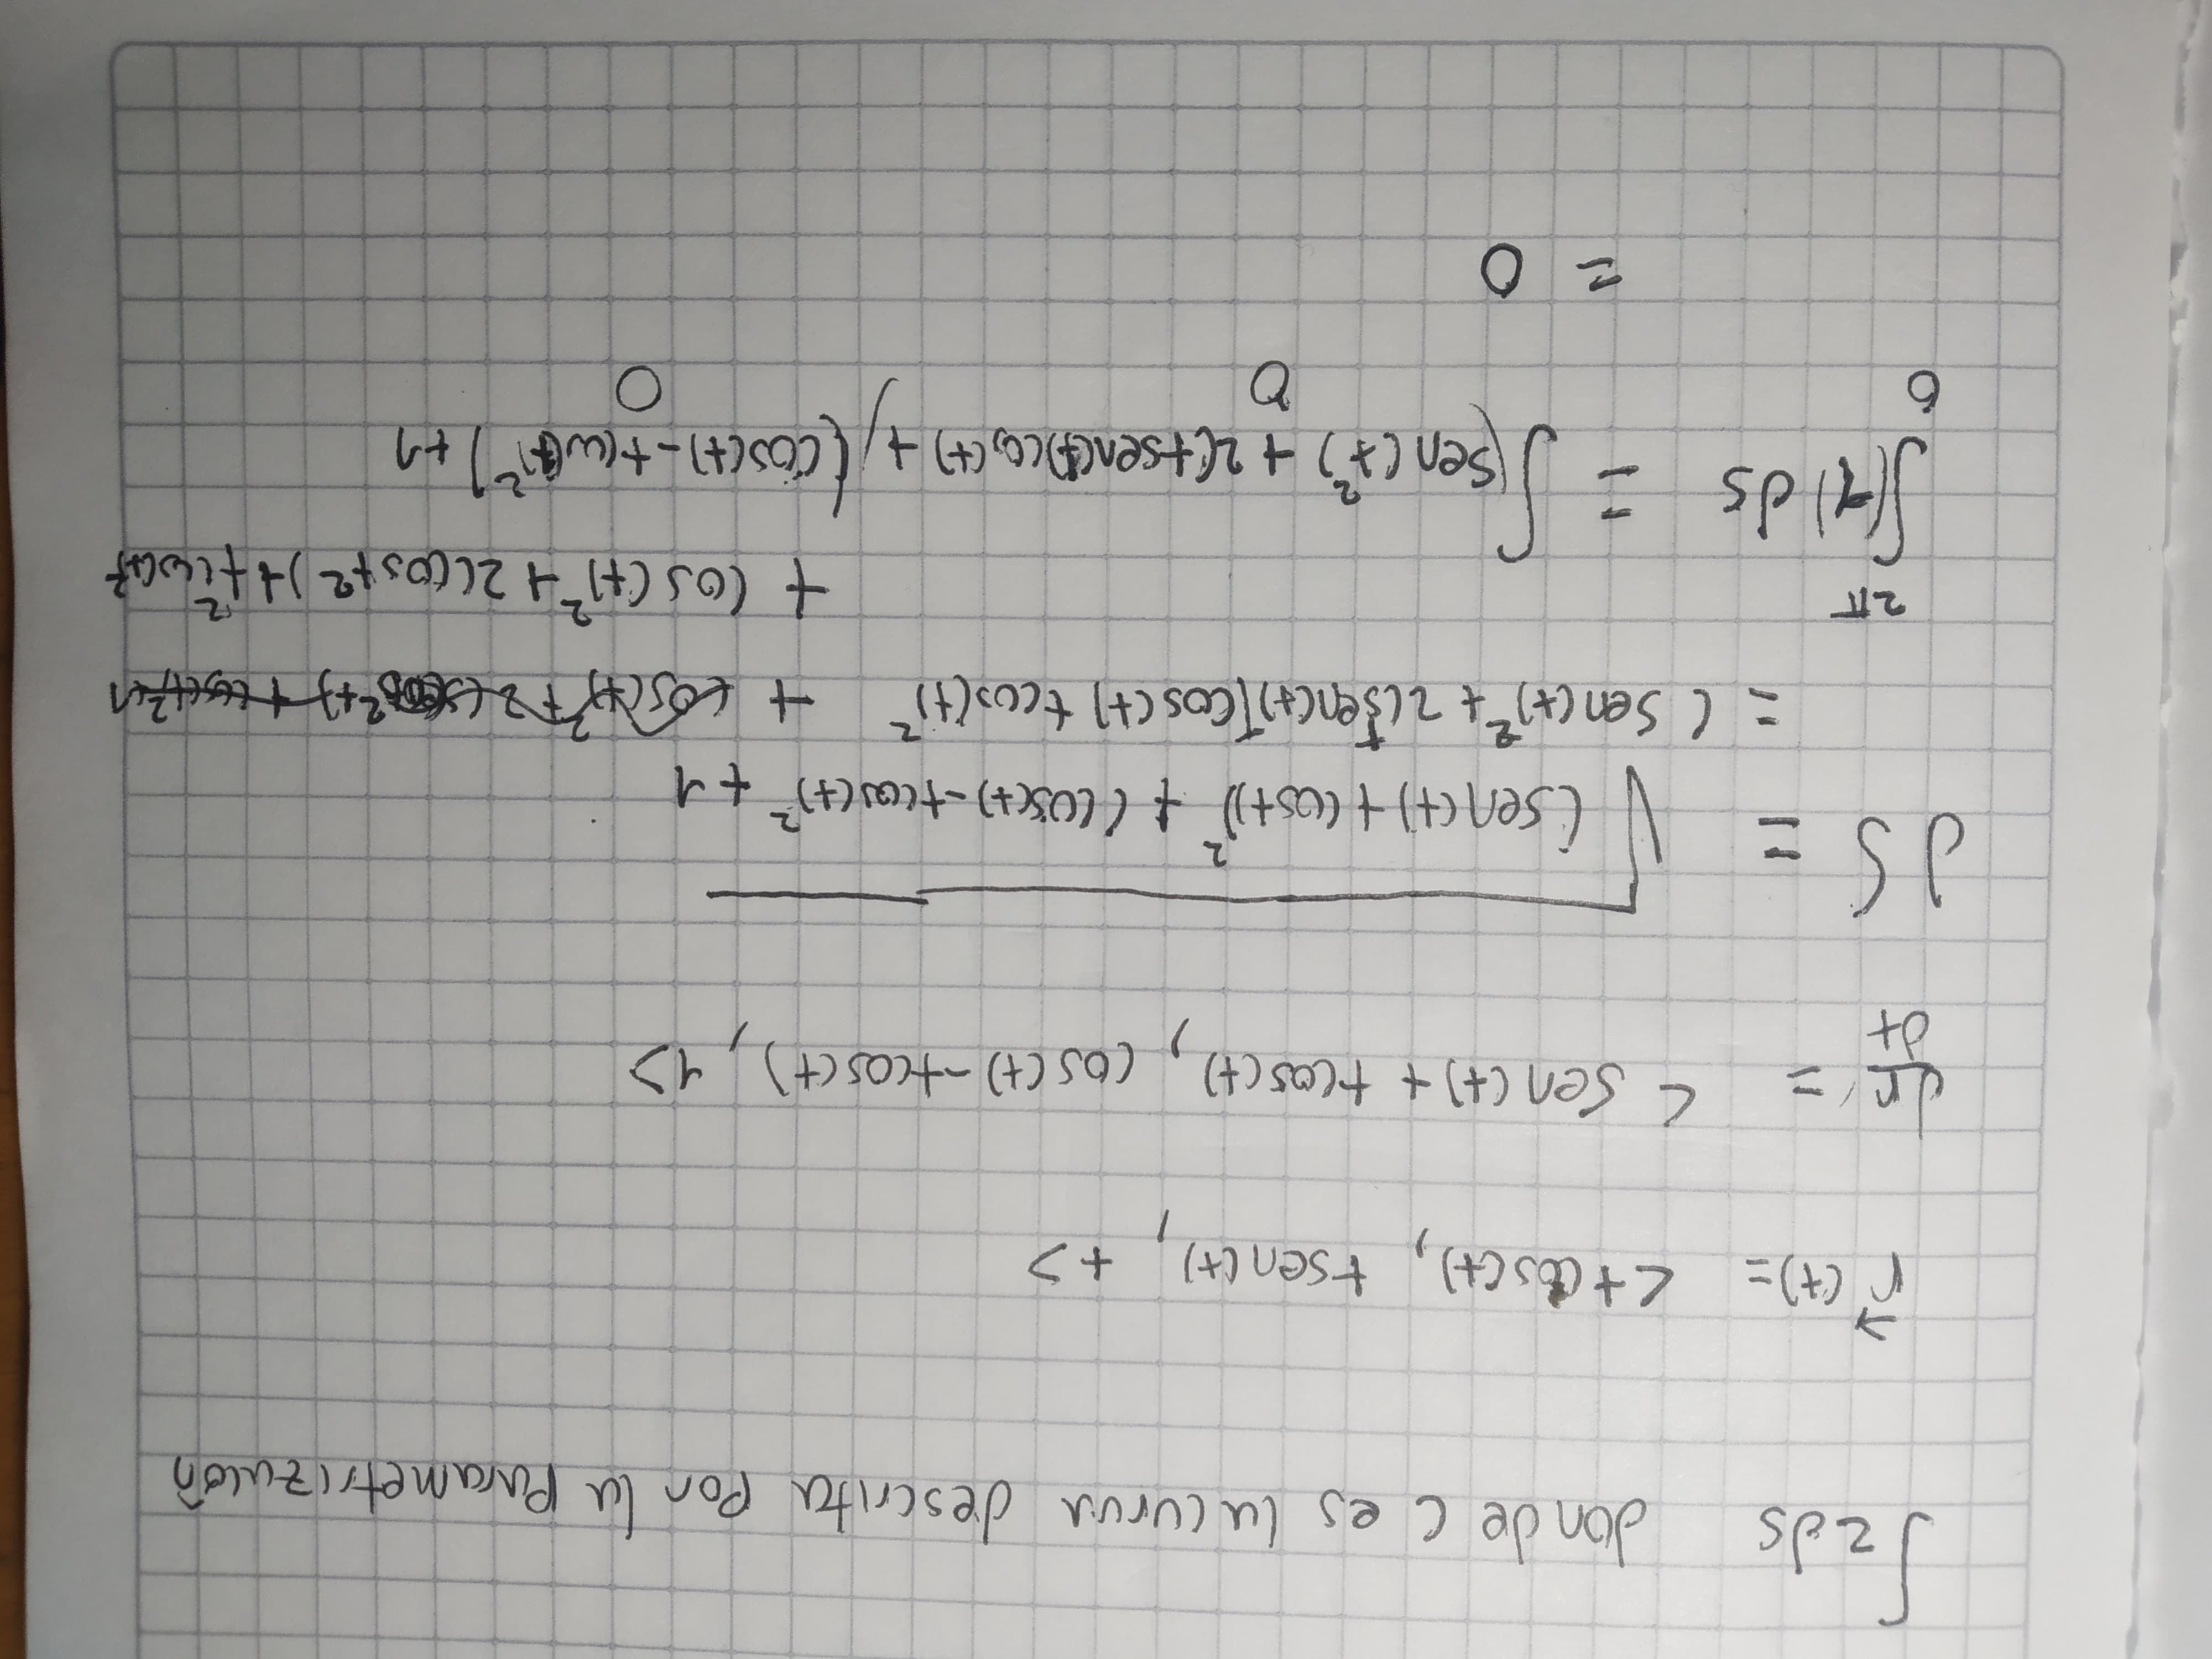 ∫zds donde C es la curva descrita por la parametrización
r⃗(t) = <tcos(t), tsen(t), t>
dr/dt = <sen(t) + tcos(t), cos(t) - tcos(t), 1>
dS = √(sen(t) + tcos(t))² + (cos(t) - tcos(t)² + 1
= (sen(t)² + 2(sen(t) t cos(t) + tcos(t)² +
+ (cos(t)² + 2(cos t²) +
2π
∫(t) ds = ∫(sen(t²) + 2(tsen(t)cos(t) + (cos(t) - t
0 0 0
= 0